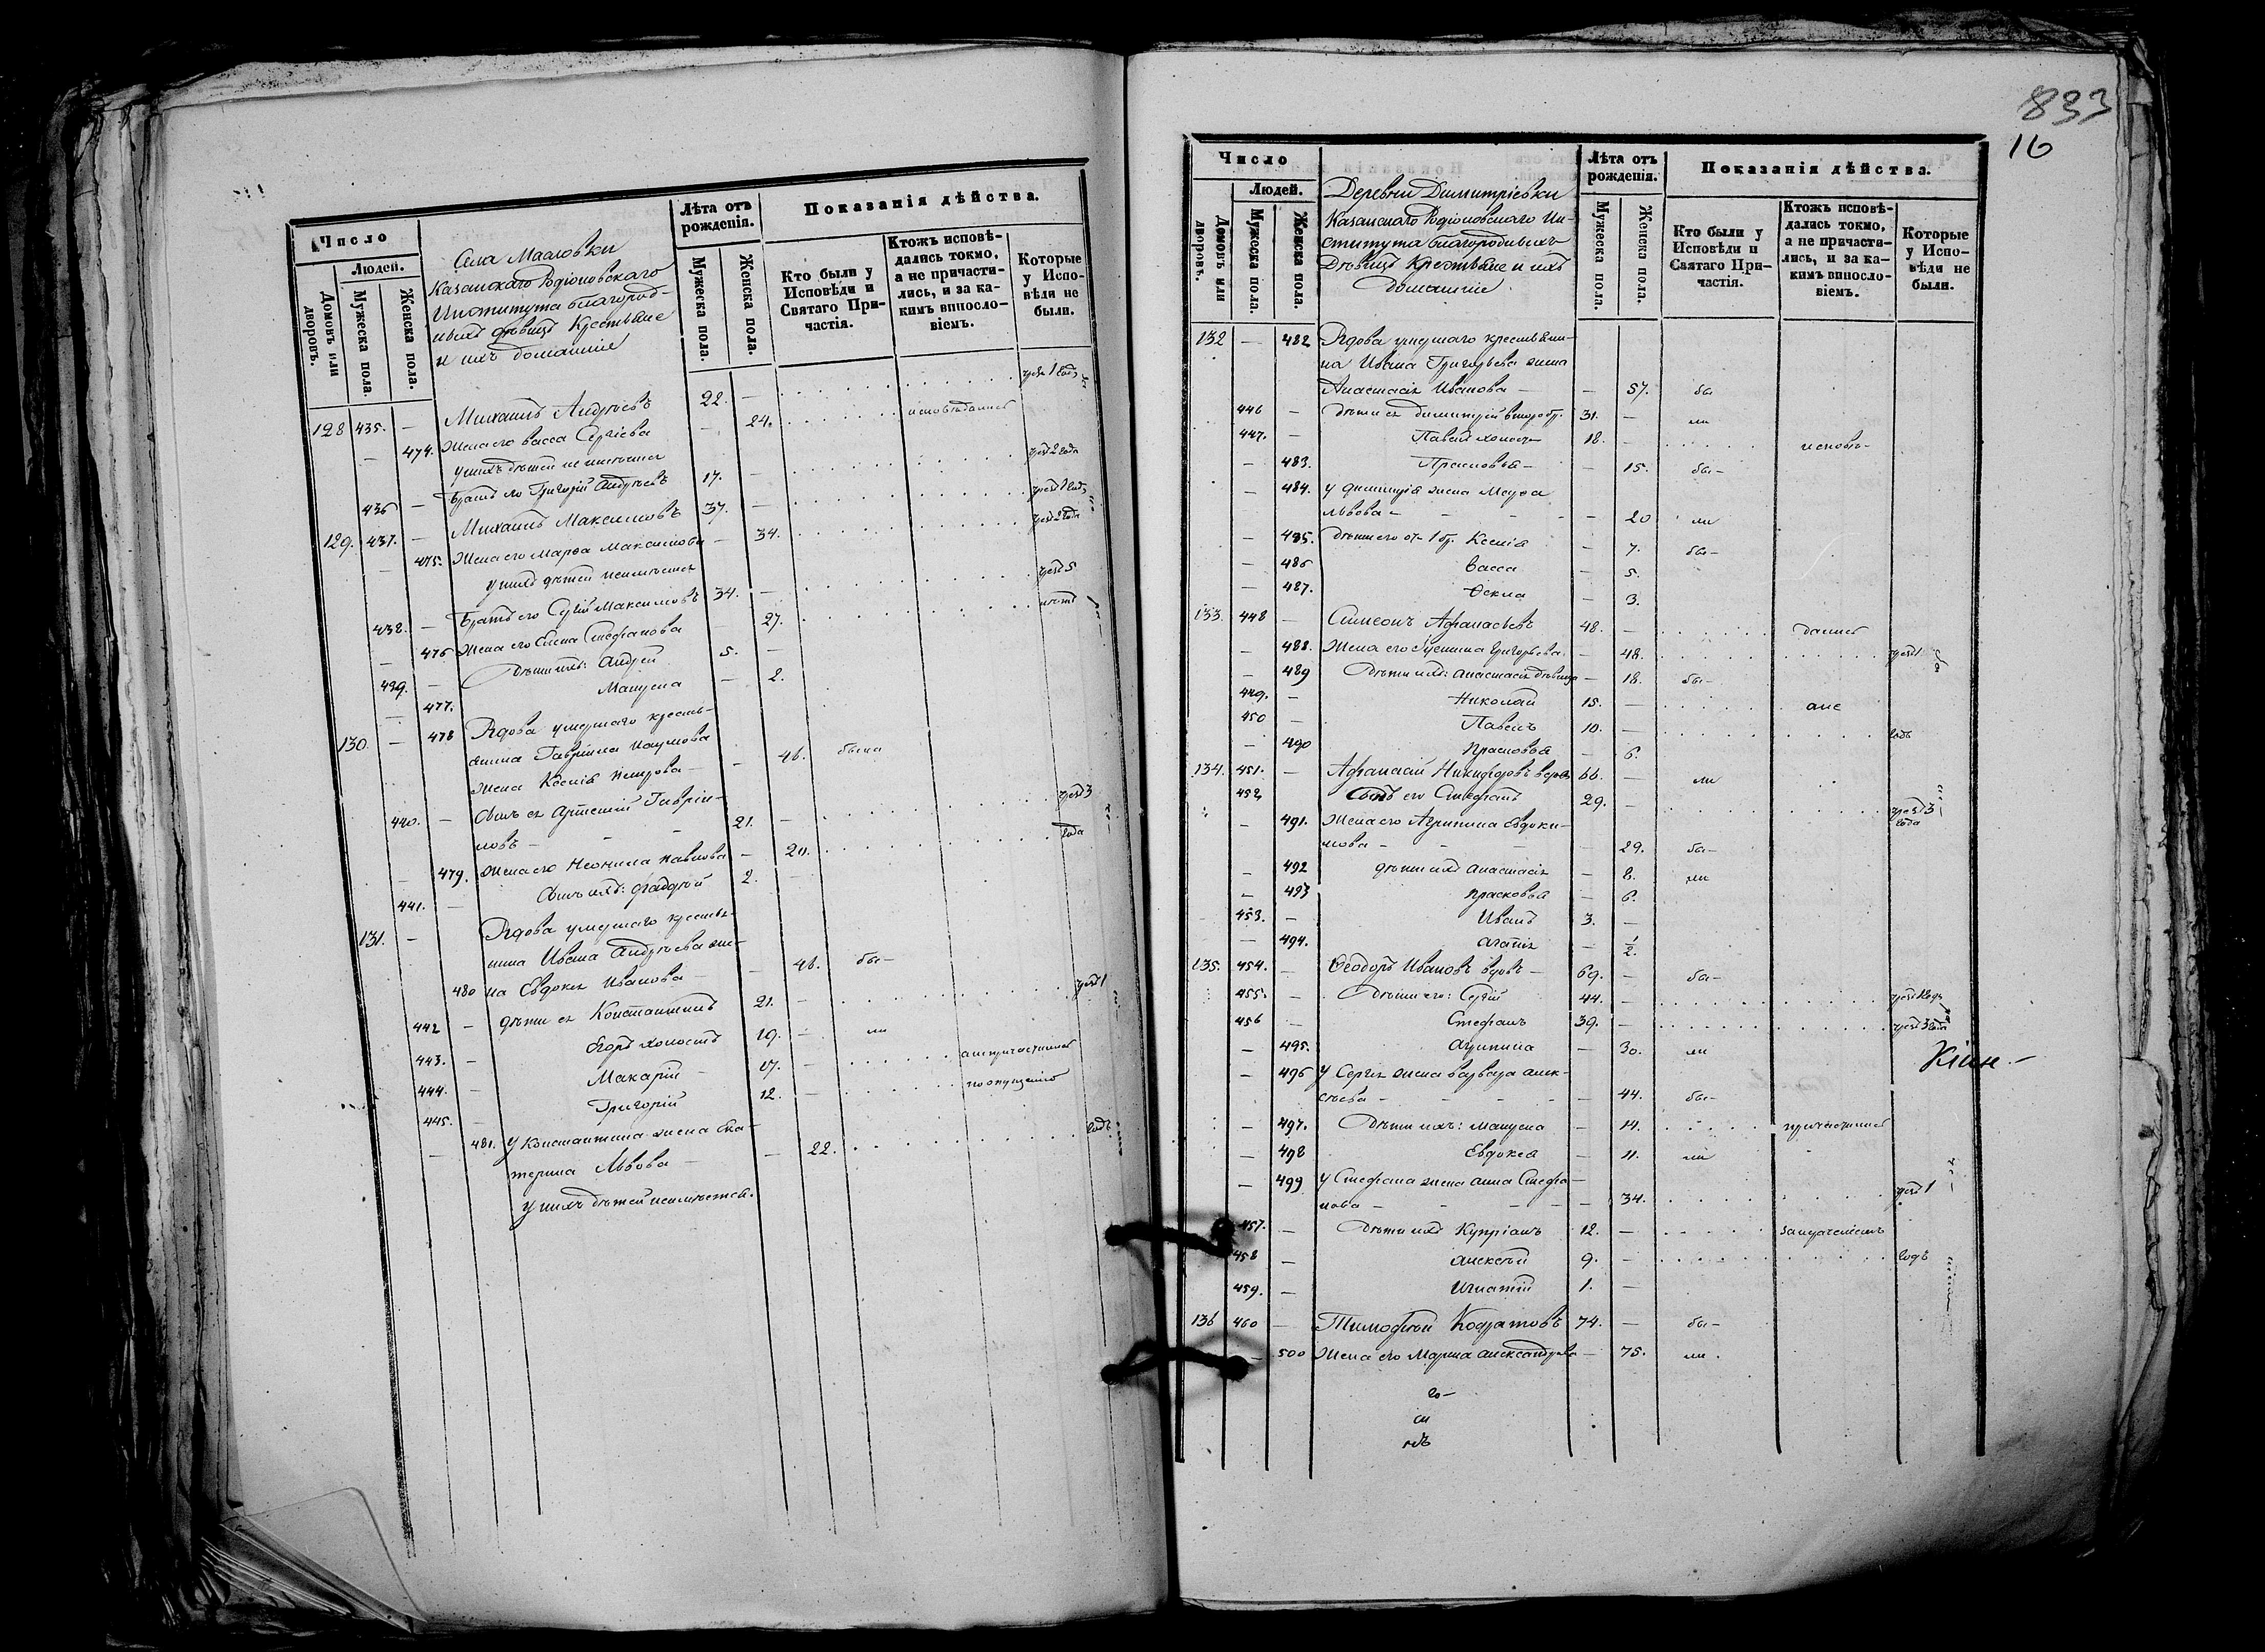 Число
Людей.
Домовъ или дворовъ.
Мужеска пола.
Женска пола.
Села Масловки
Казанскаго Родіоновскаго
Института благород-
ныхъ дѣвицъ Крестьяне
и ихъ домашніе
Лѣта отъ рожденія.
Мужеска пола.
Женска пола.
Показанія дѣйства.
Кто были у Исповѣди и Святаго При-частія.
Ктожъ исповѣ-дались токмо, а не причасти-лись, и за ка-кимъ винносло-віемъ.
Которые у Испо-вѣди не были.
128 435. — Михаилъ Андреевъ 22. — чрезъ 1 годъ
— 474. Жена его Васса Сергіева — 24. исповѣдались
у нихъ дѣтей не имѣется
436 — Братъ его Григорій Андреевъ 17. — чрезъ 2 года
129. 437. — Михаилъ Максимовъ 37. — чрезъ 1 годъ
— 475. Жена его Марѳа Максимова — 34. чрезъ 2 года
у нихъ дѣтей не имѣется
438. — Братъ его Сергій Максимовъ 34. — чрезъ 5
— 476 Жена его Елена Стефанова — 27. лѣтъ
439. — Дѣти ихъ: Андрей 5. —
— 477. Матрена — 2.
130. — 478 Вдова умершаго кресть-
янина Гавріила Наумова
жена Ксенія Петрова — — 46. была
440. — Сынъ ея Артемій Гавріи-
ловъ — 21. — чрезъ 3
— 479. Жена его Неонила Павлова — 20. года
441. — Сынъ ихъ: Фаддѣй 2. —
131. — Вдова умершаго крестья-
нина Ивана Андреева же-
480 на Евдокія Иванова — — 46. бы-
442 — дѣти ея Константинъ 21. — чрезъ 1
443. — Егоръ холостъ 19. — ли
444. — Макарій — 17. — а не причастились
445. — Григорій 12. — по опущенію
— 481. У Константина жена Ека-
терина Львова — — 22. годъ
У нихъ дѣтей не имѣется.
833
16
Число
Людей.
Домовъ или дворовъ.
Мужеска пола.
Женска пола.
Деревни Димитріевки
Казанскаго Родіоновскаго Ин-
ститута благородныхъ
Дѣвицъ Крестьяне и ихъ
домашніе
Лѣта отъ рожденія.
Мужеска пола.
Женска пола.
Показанія дѣйства.
Кто были у Исповѣди и Святаго При-частія.
Ктожъ исповѣ-дались токмо, а не причасти-лись, и за ка-кимъ винносло-віемъ.
Которые у Испо-вѣди не были.
132 — 482 Вдова умершаго крестьяни-
на Ивана Григорьева жена
Анастасія Иванова — — 57. бы
446 — дѣти ея Димитрій второбр. 31. — ли
447. — Павелъ холостъ 18. — исповѣ-
— 483. Прасковья — — 15. бы-
— 484. У Димитрія жена Марѳа
Львова — — 20 ли
— 485. дѣти его от 1 бр. Ксенія — 7. бы-
— 486 Васса — 5.
— 487. Ѳекла — 3.
133. 448 — Симеонъ Афанасьевъ 48. — дались
— 488. Жена его Гликерія Григорьева — 48. чрезъ 1
— 489 Дѣти ихъ: Анастасія дѣвица — 18. бы-
449. — Николай 15. — а не
450 — Павелъ 10. — годъ
— 490 Прасковья — 6.
134. 451. — Афанасій Никифоровъ вдовъ 66. — ли
452 Сынъ его Стефанъ 29. — чрезъ 3 года
— 491. Жена его Агрипина Евдоки-
мова — — 29. бы-
— 492 дѣти ихъ Анастасія — 8. ли
— 493 Прасковья — 6.
453. — Иванъ 3. —
— 494. Агафія — 1/2.
135. 454. — Ѳеодоръ Ивановъ вдовъ — 69. — бы-
455. — Дѣти его: Сергій 44. — чрезъ 1 годъ
456 — Стефанъ 39. — чрезъ 3 года
— 495. Агрипина — 30. ли
— 496 У Сергія жена Варвара Алек-
сѣева — — 44. бы-
— 497. Дѣти ихъ: Матрена — 14. причастились
— 498 Евдокея — 11. ли
— 499 У Стефана жена Анна Стефа-
нова — — 34. чрезъ 1
457. — Дѣти ихъ Купріанъ 12. —
458 — Алексѣй 9. — годъ
459. — Игнатій 1. —
136 460 — Тимофѣй Кодратовъ 74. — бы-
— 500 Жена его Марина Александрова — 75. ли